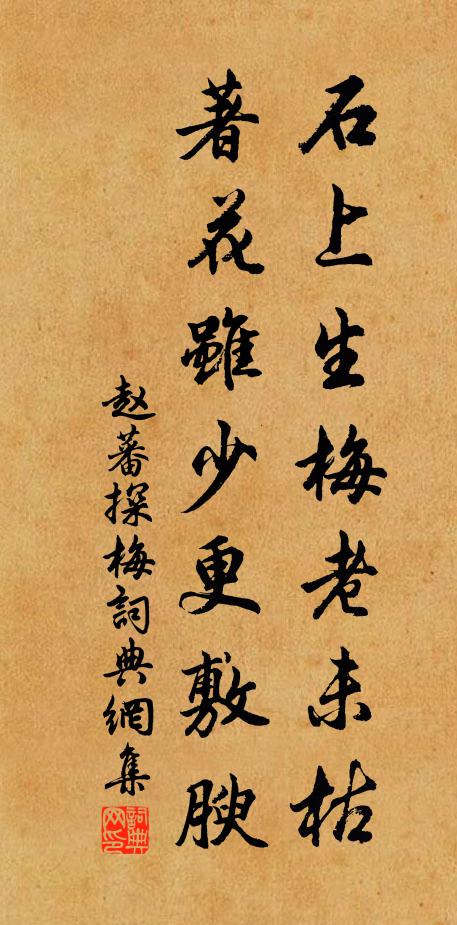 石上生梅老未枯
著花雖少更敷腴
赵蕃探梅詞典網集
詞典网印